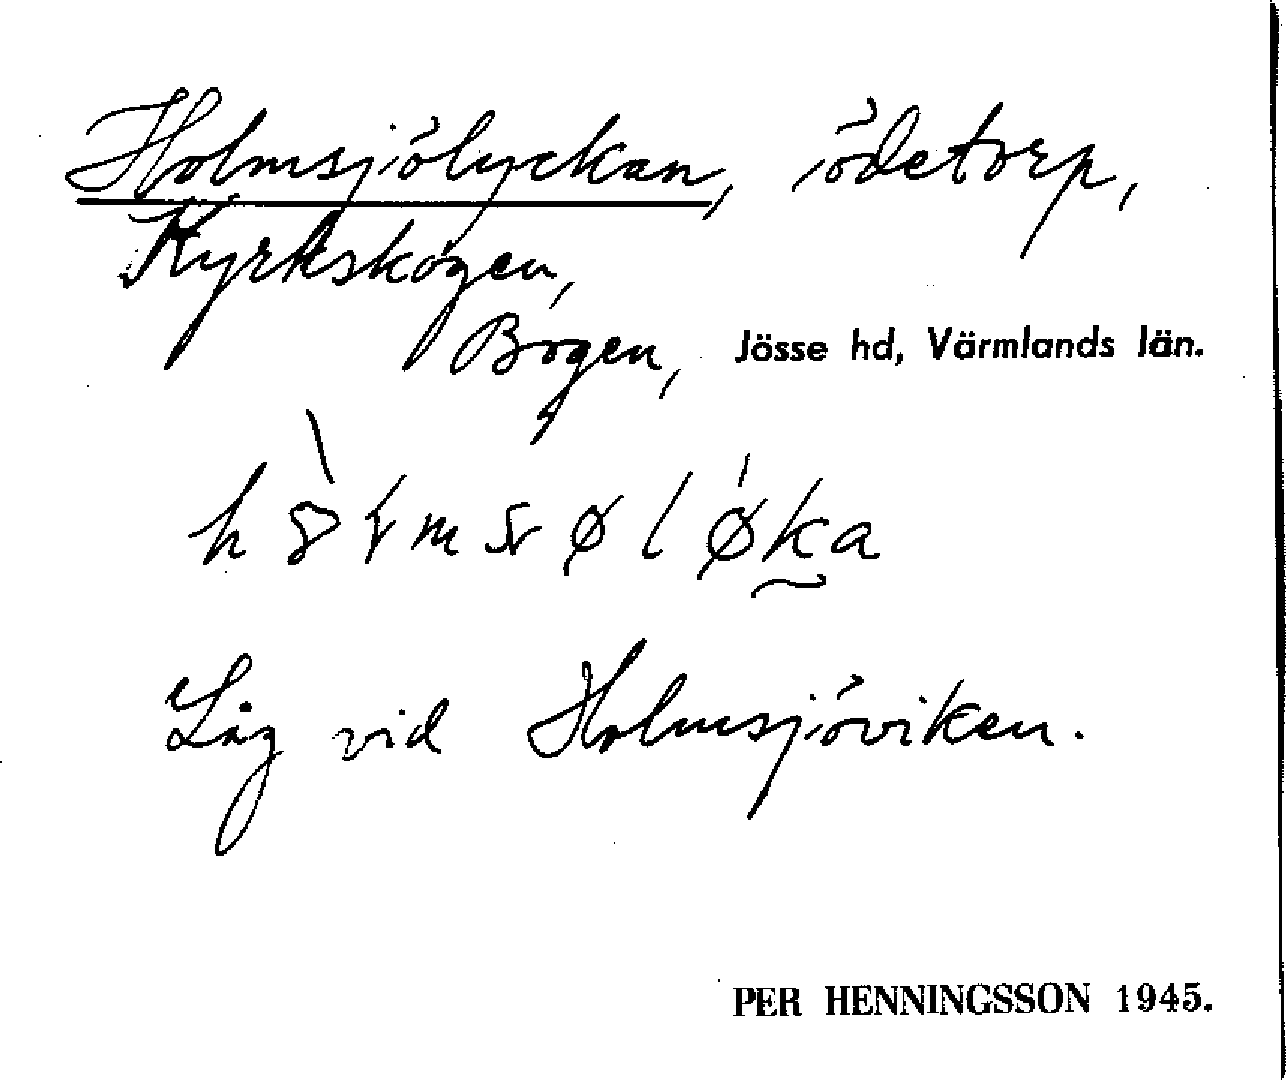 Holmsjölyckan, ödetorp,
Kyrkskogen,
Bogen, Jösse hd, Värmlands län.
Låg vid Holmsjöviken.
PER HENNINGSSON 1945.